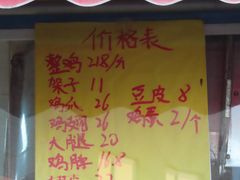 价格表
整鸡 218/只
架子 11
鸡爪 26
鸡翅 26
大腿 20
鸡脖 16.8
豆皮 8
鸡蛋 2/个